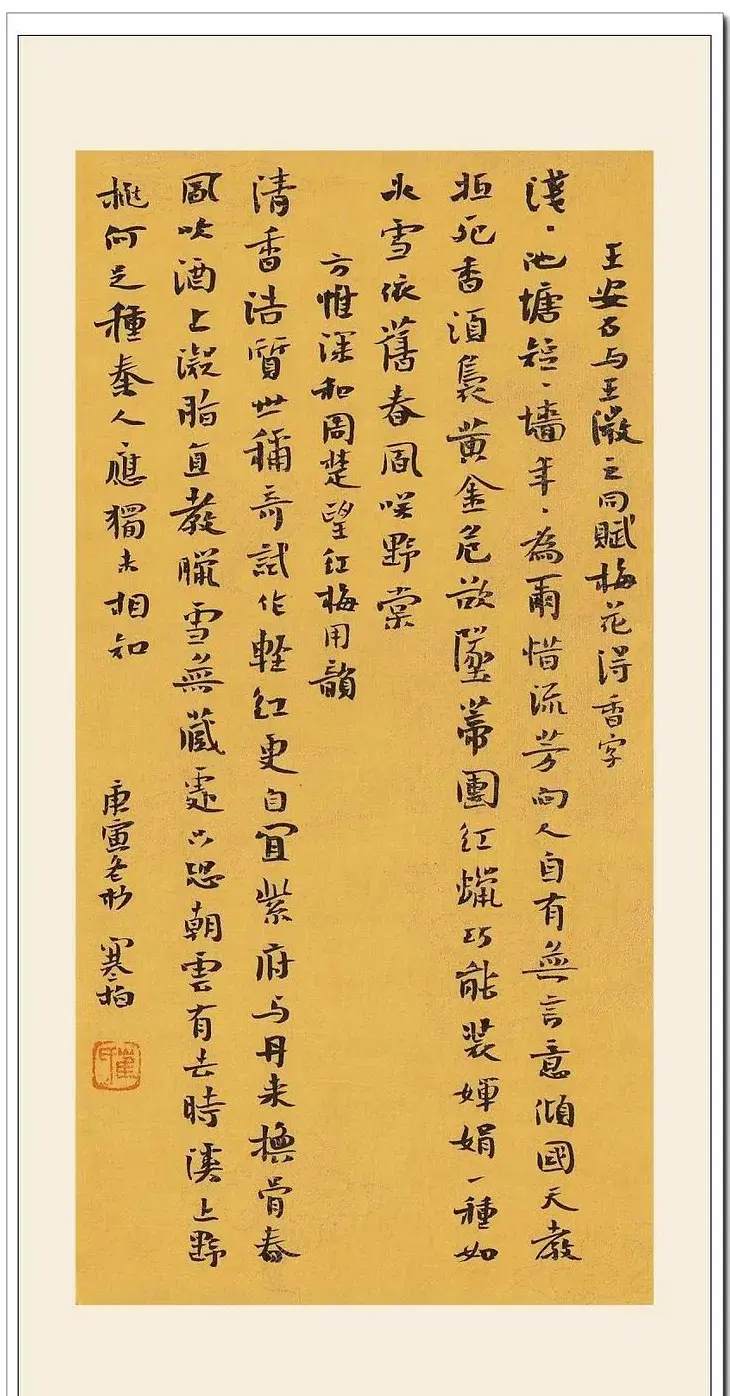 王安石与王微之同賦梅花得香字
淺、池塘短、墻年、為爾惜流芳向人自有無言意傾國天教
抵死香須裊黃金危欲墜蒂團紅蠟巧能裝嬋娟一種如
氷雪依舊春風咲野棠
方惟深和周楚望紅梅用韻
清香浩質世稱奇試作輕紅更自宜紫府与丹来換骨春
風吹酒上凝脂直教臘雪無藏處只恐朝雲有去時溪上野
桃何足種秦人應獨未相知
庚寅冬 寒柏